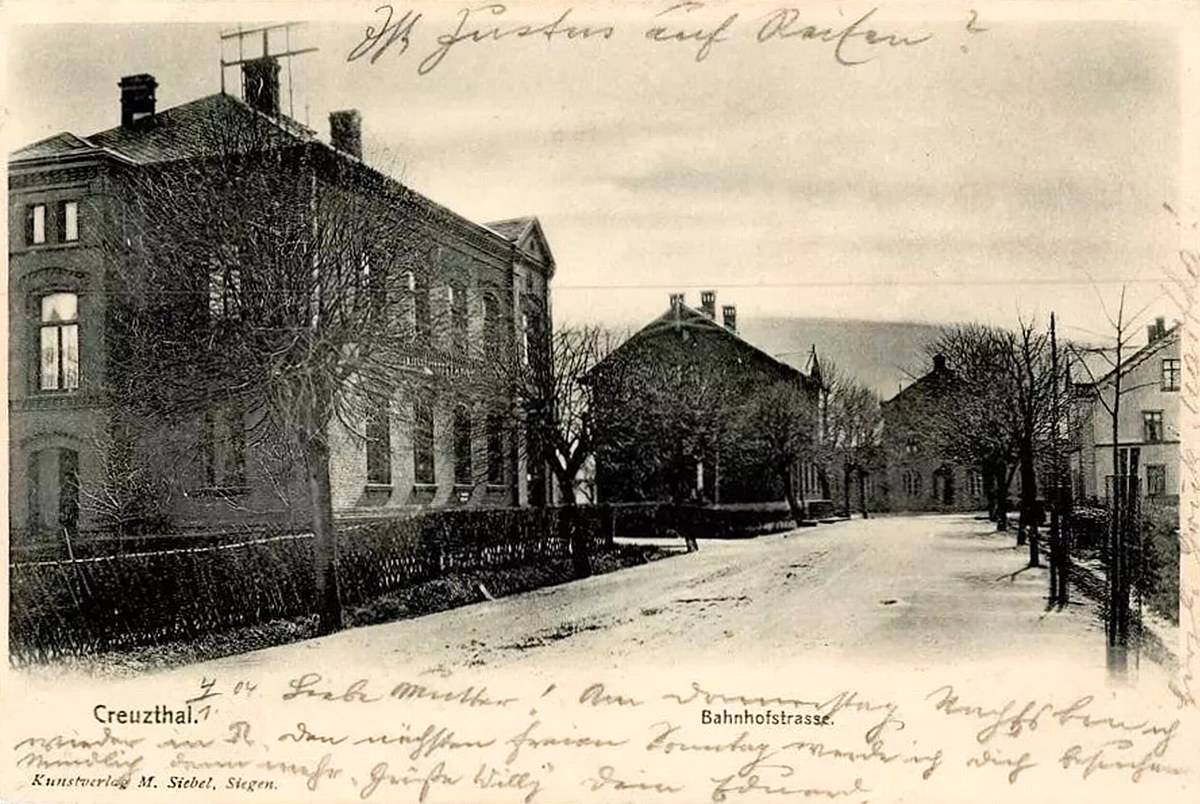 Ist Justus auf Reisen?
4/1. 04 Liebe Mutter! Am Donnerstag Nachts bin ich
Creuzthal.
Bahnhofstrasse.
wieder in den nächsten freien Sonntag werde ich Dich besuchen
Mündlich dann mehr. Grüße Willy Dein Eduard
Kunstverlag M. Siebel, Siegen.